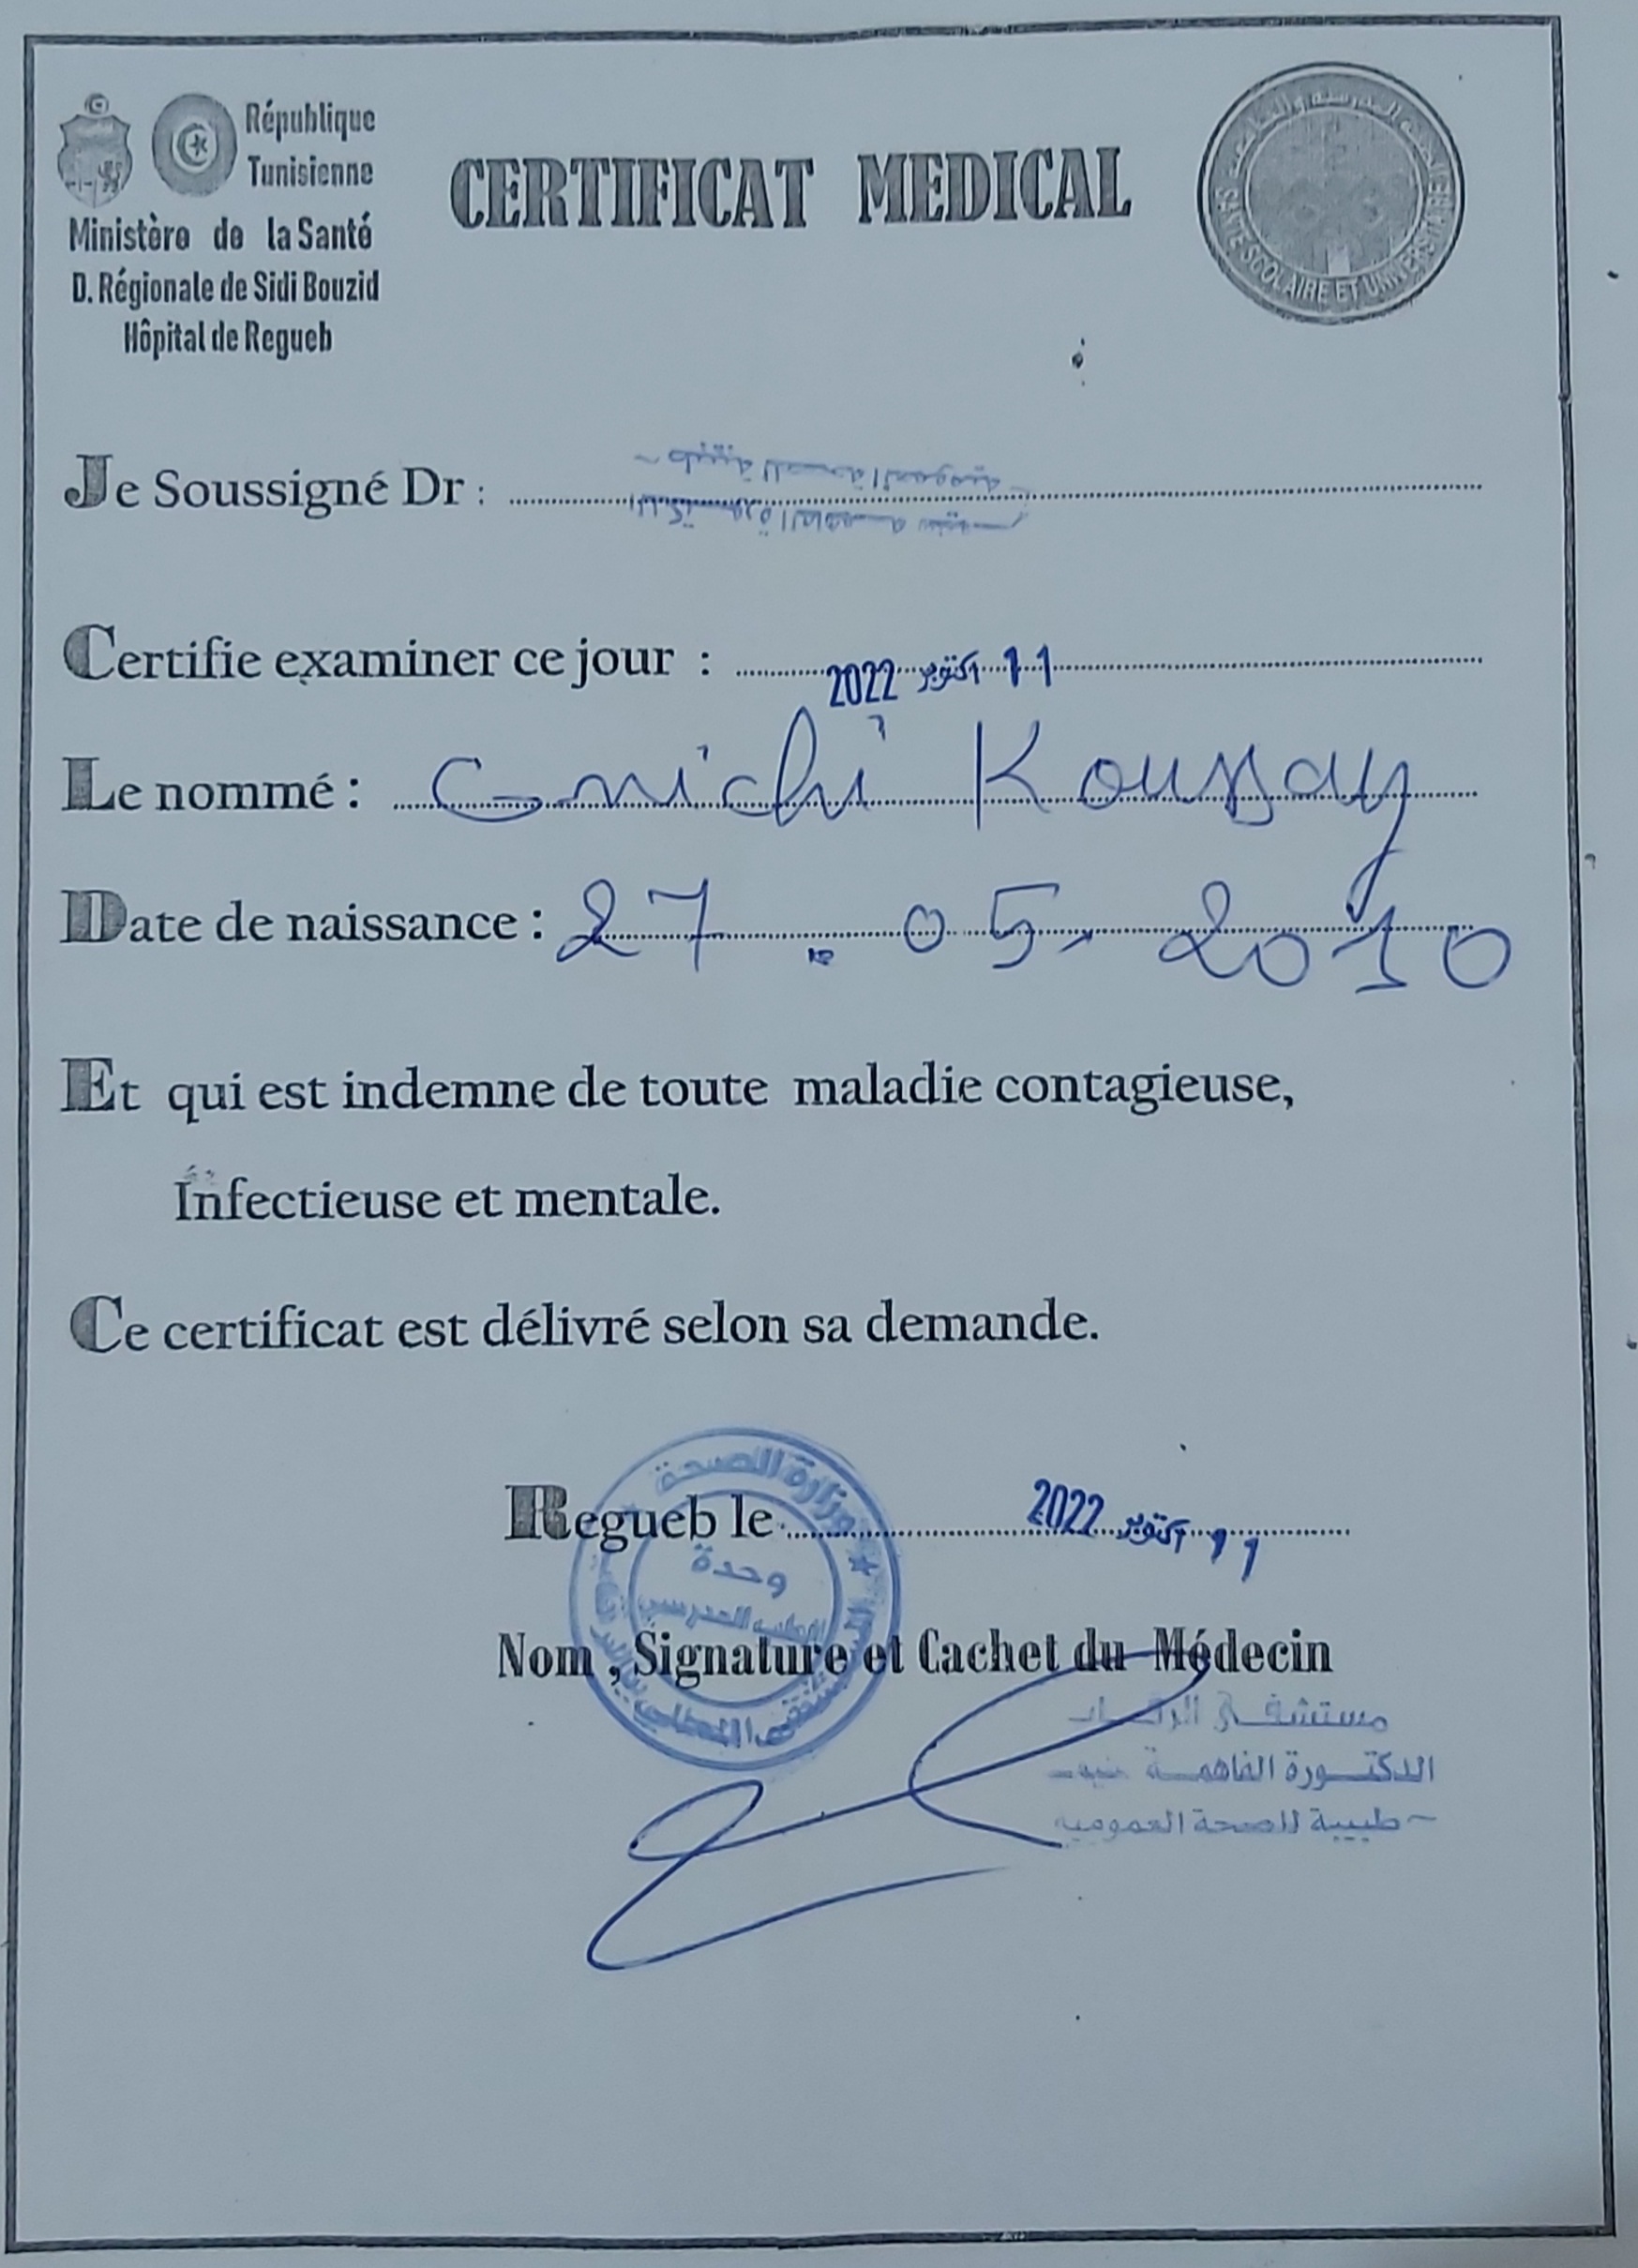 République
Tunisienne
Ministère de la Santé
D. Régionale de Sidi Bouzid
Hôpital de Regueb
CERTIFICAT MEDICAL
SANTE SCOLAIRE ET UNIVERSITAIRE
Je Soussigné Dr :
الدكتورة الفاهمة
طبيبة للصحة العمومية
Certifie examiner ce jour : 11 أكتوبر 2022
Le nommé : Gmichi Koussay
Date de naissance : 27.05.2010
Et qui est indemne de toute maladie contagieuse,
Infectieuse et mentale.
Ce certificat est délivré selon sa demande.
Regueb le 11 أكتوبر 2022
وزارة الصحة
وحدة
الطب المدرسي
Nom, Signature et Cachet du Médecin
مستشفى الرقاب
الدكتورة الفاهمة
طبيبة للصحة العمومية